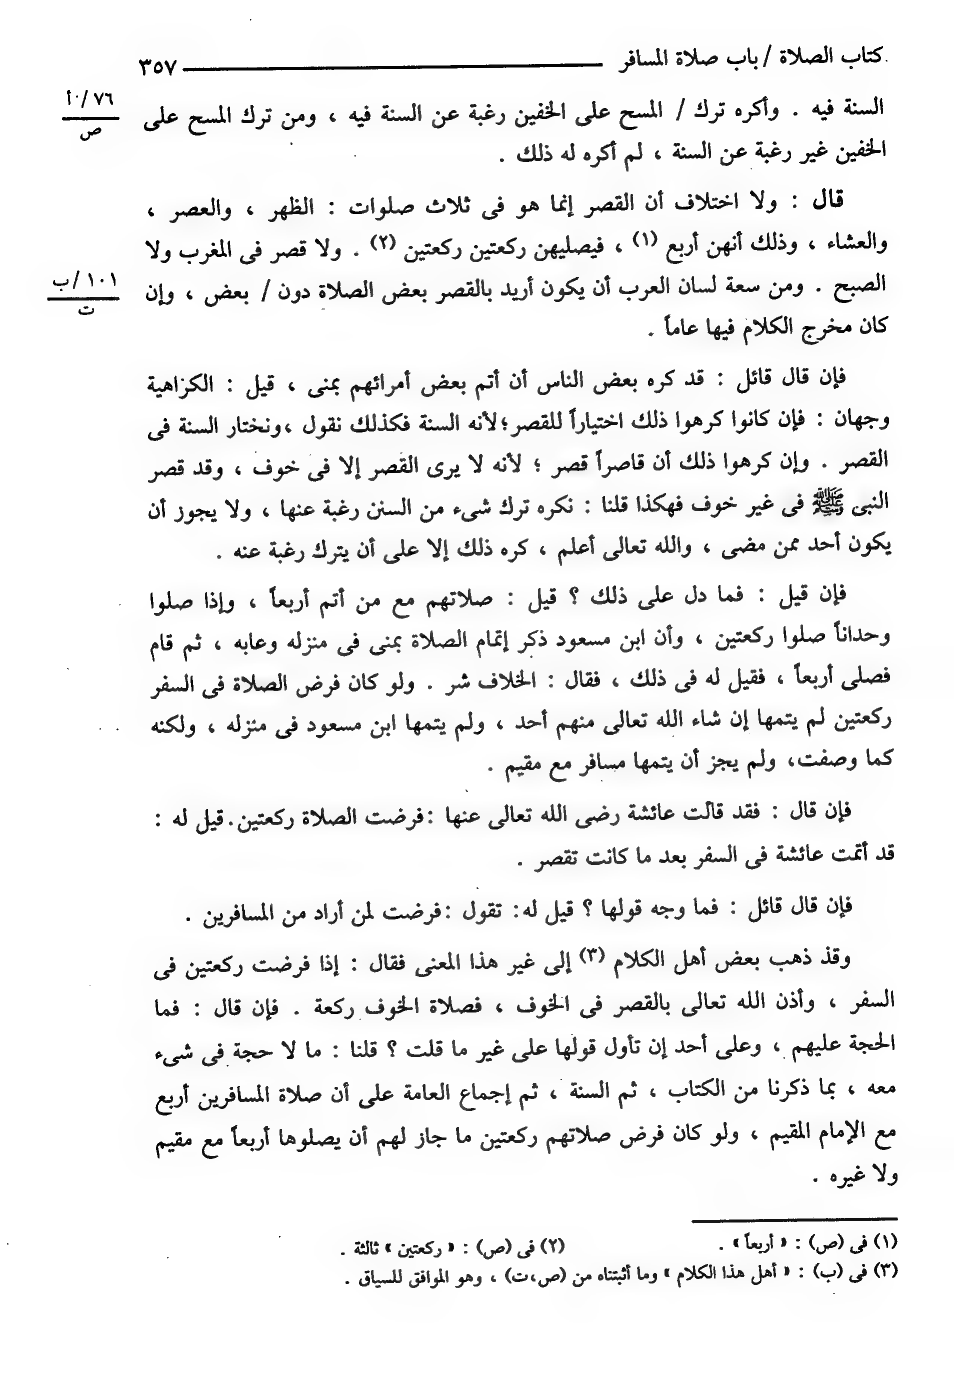 كتاب الصلاة / باب صلاة المسافر ٣٥٧
السنة فيه . وأكره ترك / المسح على الخفين رغبة عن السنة فيه ، ومن ترك المسح على
٧٦/ أ
ص
الخفين غير رغبة عن السنة ، لم أكره له ذلك .
قال : ولا اختلاف أن القصر إنما هو فى ثلاث صلوات : الظهر ، والعصر ،
والعشاء ، وذلك أنهن أربع (١) ، فيصليهن ركعتين ركعتين (٢) . ولا قصر فى المغرب ولا
الصبح . ومن سعة لسان العرب أن يكون أريد بالقصر بعض الصلاة دون / بعض ، وإن
١٠١/ب
ت
كان مخرج الكلام فيها عاماً .
فإن قال قائل : قد كره بعض الناس أن أتم بعض أمرائهم بمنى ، قيل : الكراهية
وجهان : فإن كانوا كرهوا ذلك اختياراً للقصر؛ لأنه السنة فكذلك نقول ،ونختار السنة فى
القصر . وإن كرهوا ذلك أن قاصراً قصر ؛ لأنه لا يرى القصر إلا فى خوف ، وقد قصر
النبى ﷺ فى غير خوف فهكذا قلنا : نكره ترك شىء من السنن رغبة عنها ، ولا يجوز أن
يكون أحد ممن مضى ، والله تعالى أعلم ، كره ذلك إلا على أن يترك رغبة عنه .
فإن قيل : فما دل على ذلك ؟ قيل : صلاتهم مع من أتم أربعاً ، وإذا صلوا
وحداناً صلوا ركعتين ، وأن ابن مسعود ذكر إتمام الصلاة بمنى فى منزله وعابه ، ثم قام
فصلى أربعاً ، فقيل له فى ذلك ، فقال : الخلاف شر . ولو كان فرض الصلاة فى السفر
ركعتين لم يتمها إن شاء الله تعالى منهم أحد ، ولم يتمها ابن مسعود فى منزله ، ولكنه
كما وصفت، ولم يجز أن يتمها مسافر مع مقيم .
فإن قال : فقد قالت عائشة رضى الله تعالى عنها :فرضت الصلاة ركعتين. قيل له :
قد أتمت عائشة فى السفر بعد ما كانت تقصر .
فإن قال قائل : فما وجه قولها ؟ قيل له: تقول :فرضت لمن أراد من المسافرين .
وقد ذهب بعض أهل الكلام (٣) إلى غير هذا المعنى فقال : إذا فرضت ركعتين فى
السفر ، وأذن الله تعالى بالقصر فى الخوف ، فصلاة الخوف ركعة . فإن قال : فما
الحجة عليهم ، وعلى أحد إن تأول قولها على غير ما قلت ؟ قلنا : ما لا حجة فى شىء
معه ، بما ذكرنا من الكتاب ، ثم السنة ، ثم إجماع العامة على أن صلاة المسافرين أربع
مع الإمام المقيم ، ولو كان فرض صلاتهم ركعتين ما جاز لهم أن يصلوها أربعاً مع مقيم
ولا غيره .
(١) فى (ص) : « أربعاً » . (٢) فى (ص) : « ركعتين » ثالثة .
(٣) فى (ب) : « أهل هذا الكلام » وما أثبتناه من (ص،ت) ، وهو الموافق للسياق .